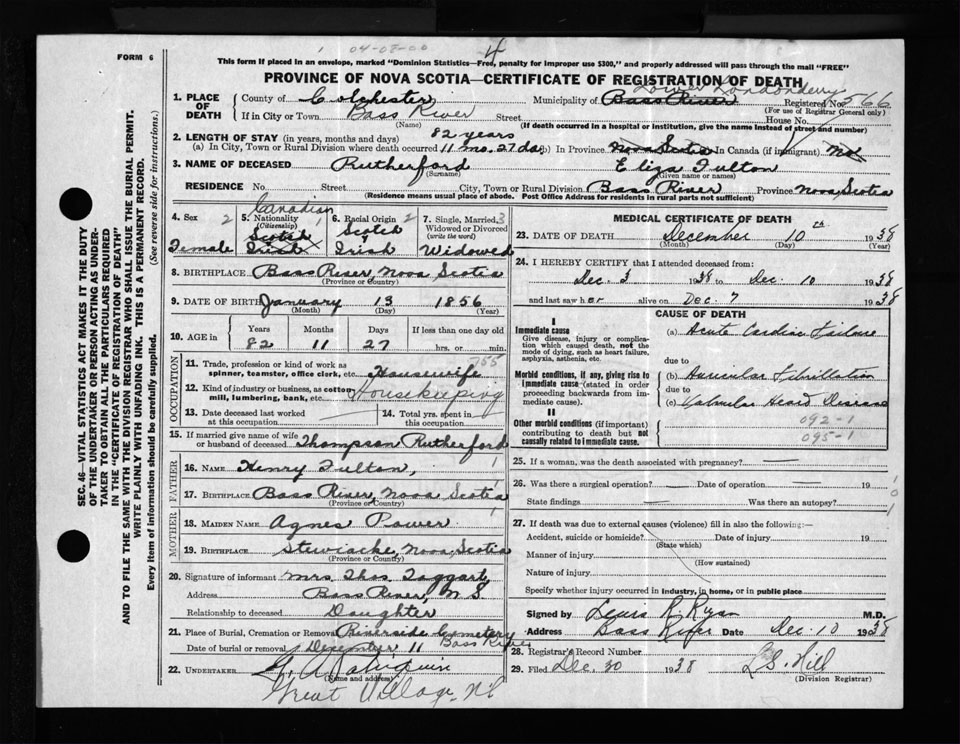 04-08-00
4
FORM 6
This form if placed in an envelope, marked "Dominion Statistics—Free, penalty for improper use $300," and properly addressed will pass through the mail "FREE"
PROVINCE OF NOVA SCOTIA—CERTIFICATE OF REGISTRATION OF DEATH
Lower Londonderry
1. PLACE OF DEATH County of Colchester Municipality of Bass River Registered No. 566
(For use of Registrar General only)
If in City or Town Bass River Street House No.
(Name) (If death occurred in a hospital or institution, give the name instead of street and number)
82 years
2. LENGTH OF STAY (in years, months and days)
(a) In City, Town or Rural Division where death occurred 11 mo. 27 da (b) In Province Nova Scotia In Canada (if immigrant) no
3. NAME OF DECEASED Rutherford Eliza Fulton
(Surname) (Given name or names)
RESIDENCE No. Street City, Town or Rural Division Bass River Province Nova Scotia
(Residence means usual place of abode. Post Office Address for residents in rural parts not sufficient)
Canadian
4. Sex 2 5. Nationality (Citizenship) 1 6. Racial Origin 2 7. Single, Married, Widowed or Divorced (write the word) 3
Scotch Scotch
Female Irish Irish Widowed
8. BIRTHPLACE Bass River, Nova Scotia
(Province or Country)
9. DATE OF BIRTH January 13 1856
(Month) (Day) (Year)
10. AGE in Years Months Days If less than one day old
82 11 27 hrs. or min.
OCCUPATION
11. Trade, profession or kind of work as spinner, teamster, office clerk, etc. Housewife 955
12. Kind of industry or business, as cotton mill, lumbering, bank, etc. Housekeeping
13. Date deceased last worked at this occupation 14. Total yrs. spent in this occupation
15. If married give name of wife or husband of deceased Thompson Rutherford
FATHER
16. NAME Henry Fulton,
17. BIRTHPLACE Bass River, Nova Scotia
(Province or Country)
MOTHER
18. MAIDEN NAME Agnes Power
19. BIRTHPLACE Stewiacke, Nova Scotia
(Province or Country)
20. Signature of informant Mrs. Thos Taggart,
Address Bass River, N S
Relationship to deceased Daughter
21. Place of Burial, Cremation or Removal Riverside Cemetery
Bass River
Date of burial or removal December 11
22. UNDERTAKER
(Name and address)
Great Village, N S
MEDICAL CERTIFICATE OF DEATH
23. DATE OF DEATH December 10th 1938
(Month) (Day) (Year)
24. I HEREBY CERTIFY that I attended deceased from:
Dec 3 1938 to Dec 10 1938
and last saw her alive on Dec 7 1938
CAUSE OF DEATH
I
Immediate cause
Give disease, injury or complication which caused death, not the mode of dying, such as heart failure, asphyxia, asthenia, etc.
(a) Acute Cardiac Failure
due to
Morbid conditions, if any, giving rise to immediate cause (stated in order proceeding backwards from immediate cause).
(b) Auricular Fibrillation
due to
(c) Valvular Heard Disease
II
Other morbid conditions (if important) contributing to death but not causally related to immediate cause.
092-1
095-1
25. If a woman, was the death associated with pregnancy? —
26. Was there a surgical operation? — Date of operation — 19
State findings Was there an autopsy?
27. If death was due to external causes (violence) fill in also the following:—
Accident, suicide or homicide? Date of injury 19
(State which)
Manner of injury
(How sustained)
Nature of injury
Specify whether injury occurred in industry, in home, or in public place
Signed by Lewis R. Ryan M.D.
Address Bass River Date Dec. 10 1938
28. Registrar's Record Number
29. Filed Dec. 30 1938 L G. Hill
(Division Registrar)
SEC. 46—VITAL STATISTICS ACT MAKES IT THE DUTY
OF THE UNDERTAKER OR PERSON ACTING AS UNDER-
TAKER TO OBTAIN ALL THE PARTICULARS REQUIRED
IN THE "CERTIFICATE OF REGISTRATION OF DEATH"
AND TO FILE THE SAME WITH THE DIVISION REGISTRAR WHO SHALL ISSUE THE BURIAL PERMIT.
WRITE PLAINLY WITH UNFADING INK. THIS IS A PERMANENT RECORD.
Every item of information should be carefully supplied. (See reverse side for instructions.)